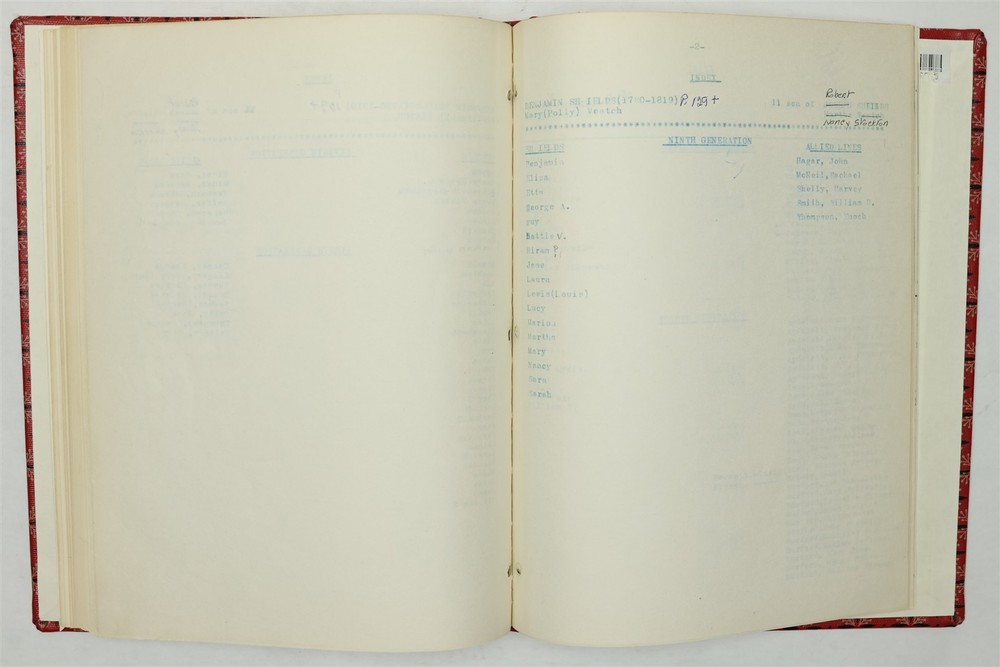 -2-
INDEX
BENJAMIN SHIELDS(1780-1819) P. 129+ 11 son of Robert
Mary(Polly) Veatch Nancy Stockton
NINTH GENERATION
SHIELDS ALLIED LINES
Benjamin Hager, John
Eliza McNeil, Rachael
Etta Shelly, Harvey
George A. Smith, William H.
Guy Thompson, Enoch
Hattie V.
Hiram P.
Jean
Laura
Lewis(Louis)
Lucy
Maria
Martha
Mary
Nancy
Sarah